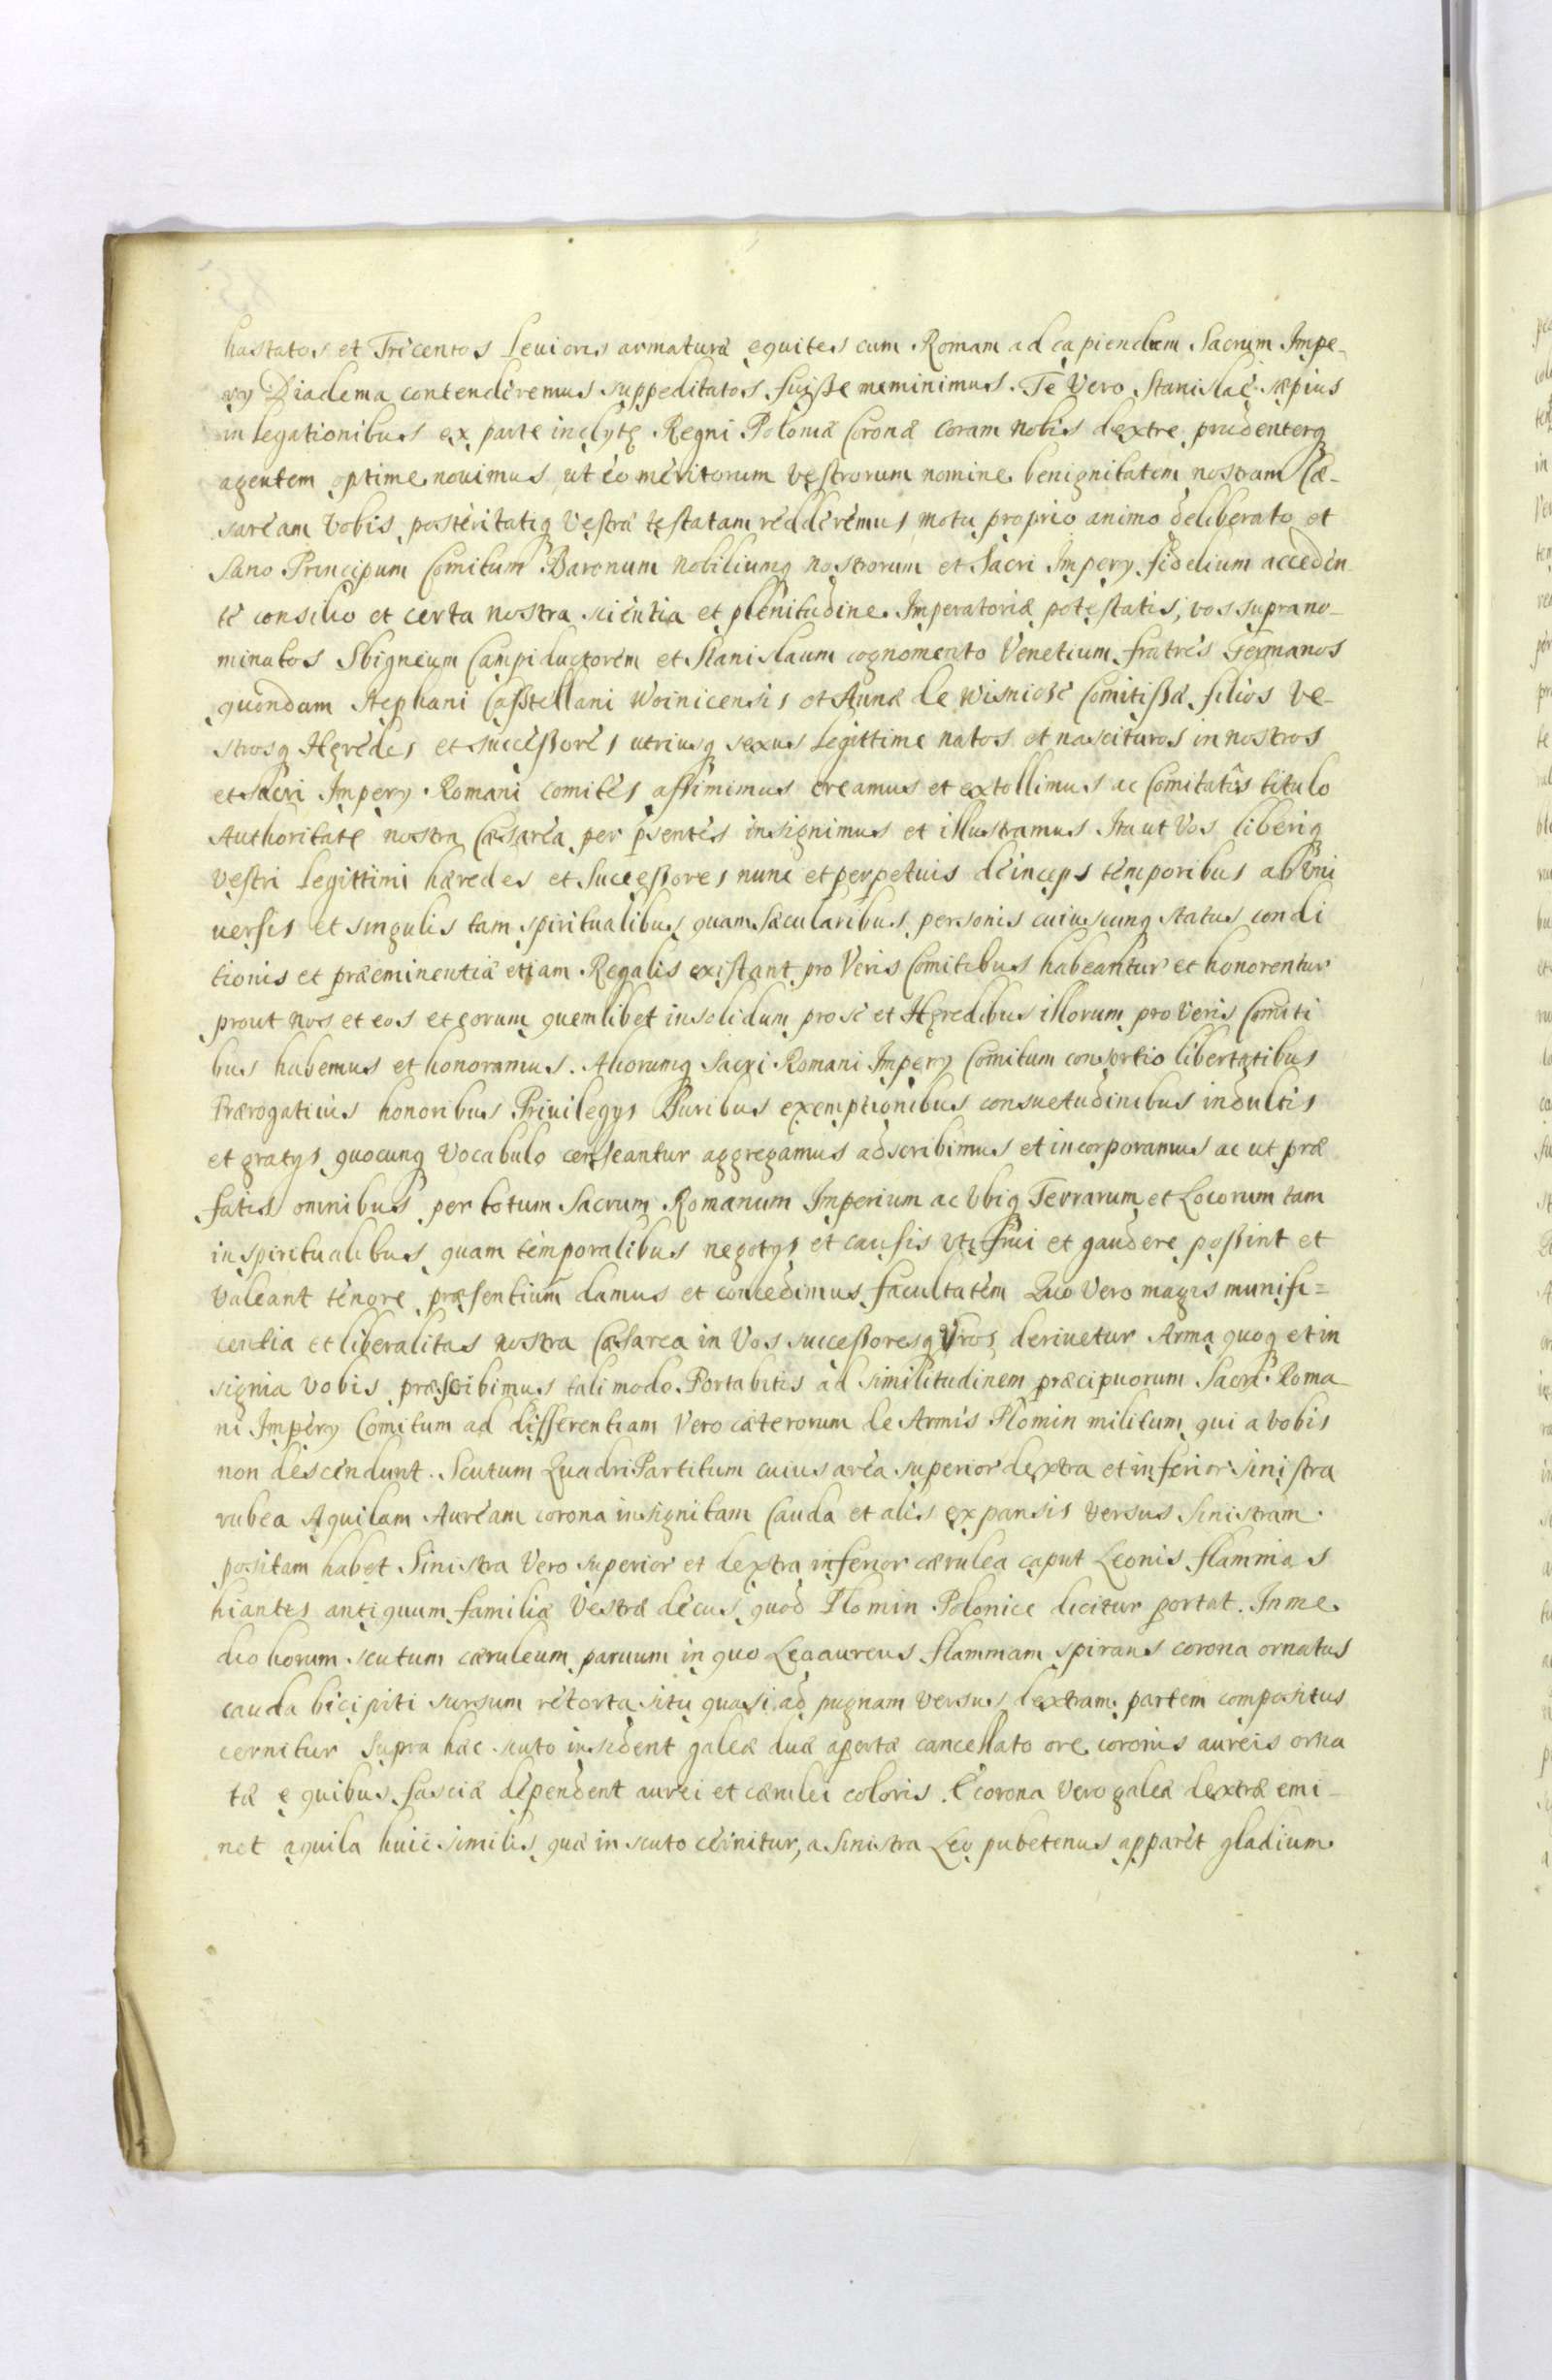 hastatos et Tricentos Levioris armaturæ equites cum Romam ad capiendum Sacrum Impe-
ry Diadema contenderemus suppeditatos fuiße meminimus. Te Vero Stanislae sæpius
in legationibus ex parte inclytę Regni Poloniæ Coronæ coram nobis dextre prudenterq
agentem optime novimus, ut eo meritorum vestrorum nomine benignitatem nostram Cæ-
saream Vobis posteritatiq Vestræ testatam redderemus motu proprio animo deliberato et
Sano Principum Comitum Baronum Nobiliumq nostrorum et Sacri Impery fidelium acceden
te consilio et certa nostra scientia et plenitudine Imperatoriæ potestatis, vos suprano-
minatos Sbigneum Campiductorem et Stanislaum cognomento Venetium fratres Germanos
quondam Stephani Caßtellani Woinicensis et Annæ de Wisnicze Comitißæ filios Ve-
strosq Hęredes et succeßores utriusq sexus Legittime natos et nascituros in nostros
et Sacri Impery Romani comites aßimimus creamus et extollimus ac Comitatûs titulo
Authoritate nostra Cæsarea per pſentes insignimus et illustramus Ita ut Vos liberiq
vestri Legittimi hæredes et Succeßores nunc et perpetuis deinceps temporibus ab Uni
uersis et singulis tam spiritualibus quam Sæcularibus personis cuiuscunq status condi
tionis et præeminentiæ etiam Regalis existant pro Veris Comitibus habeantur et honorentur
prout nos et eos et eorum quemlibet insolidum pro se et Hęredibus illorum pro Veris Comiti
bus habemus et honoramus. Aliorumq Sacri Romani Impery Comitum consortio libertatibus
Prærogatiuis honoribus Priuilegys Iuribus exemptionibus consuetudinibus indultis
et gratys quocunq Vocabulo censeantur aggregamus adscribimus et incorporamus ac ut præ
fatis omnibus per totum Sacrum Romanum Imperium ac Vbiq Terrarum et Locorum tam
in spiritualibus quam temporalibus negotys et causis uti frui et gaudere poßint et
Valeant tenore præsentium damus et concedimus facultatem Quo Vero magis munifi=
centia et liberalitas nostra Cæsarea in Vos succeßoresq Vros deriuetur Arma quoq et in
signia Vobis præscribimus tali modo. Portabitis ad similitudinem præcipuorum Sacri Roma-
ni Impery Comitum ad differentiam Vero cæterorum de Armis Plomin militum qui a vobis
non descendunt. Scutum QuadriPartitum cuius area superior dextra et inferior sinistra
rubea Aquilam Auream corona insignitam Cauda et alis expansis versus Sinistram
positam habet Sinistra Vero superior et dextra inferior cærulea caput Leonis flammas
hiantes antiquum familiæ Vestræ decus quod Plomin Polonice dicitur portat. In me
dio horum scutum cæruleum paruum in quo Leo aureus flammam spirans corona ornatus
cauda bicipiti sursum retorta situ quasi ad pugnam versus dextram partem compositus
cernitur Supra hæc scuto insident galeæ duæ apertæ cancellato ore coronis aureis orna
tæ e quibus fasciæ dependent aurei et cærulei coloris. E corona Vero galeæ dextræ emi-
net aquila huic similis quæ in scuto cernitur, a Sinistra Leo pubetenus apparet gladium